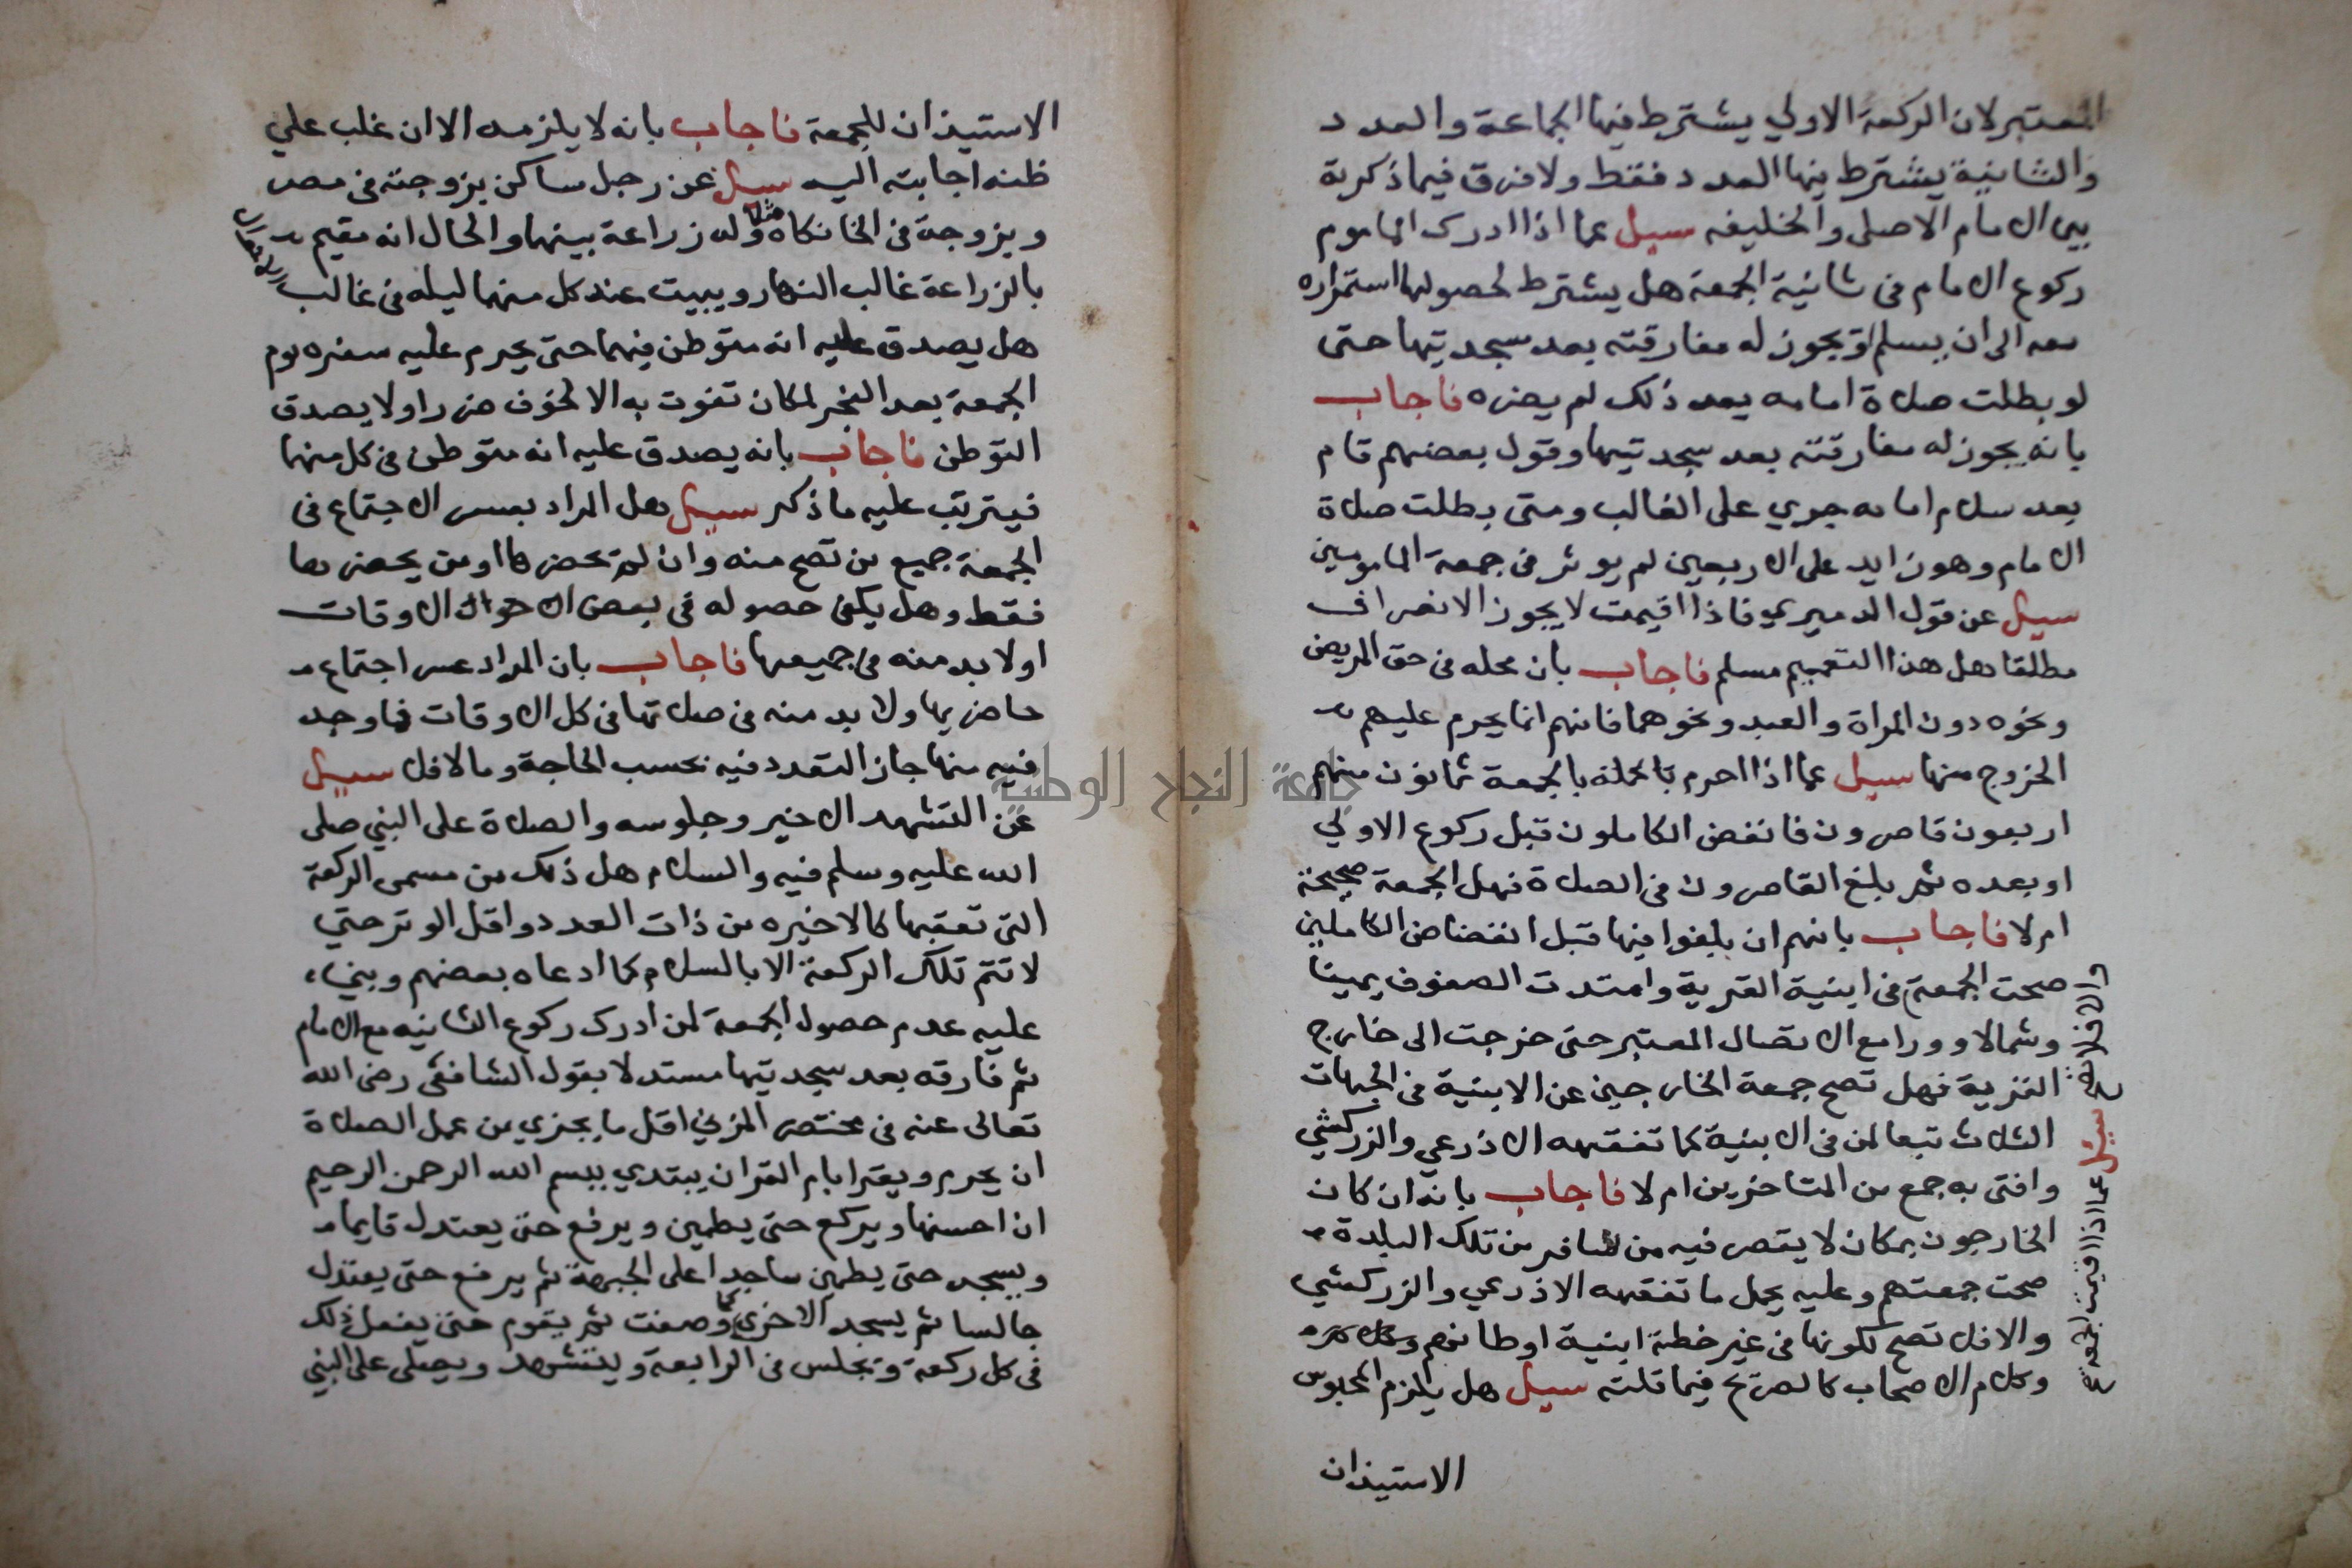 المعتبر لان الركعة الاولي يشترط فيها الجماعة والعدد
والثانية يشترط فيها العدد فقط ولا فرق فيما ذكر بة
بين الامام الاصلى والخليفه سيل عما اذا ادرك الماموم
ركوع الامام فى ثانية الجمعة هل يشترط لحصولها استمراره
معه الى ان يسلم او يجوز له مفارقته بعد سجدتيها حتى
لو بطلت صلاة امامه بعد ذلك لم يضره فاجاب
بانه يجوز له مفارقته بعد سجدتيها وقول بعضهم قام
بعد سلام امامه جري على الغالب ومتى بطلت صلاة
الامام وهو زايد على الاربعين لم يوثر فى جمعة المامومين
سيل عن قول الدميري فاذا اقيمت لا يجوز الانصراف
مطلقا هل هذا التعميم مسلم فاجاب بان محله فى حق المريض
ونحوه دون المراة والعبد ونحوهما فانهم انما يحرم عليهم
الخروج منها سيل عما اذا احرم بالجمعة ثمانون منهم
اربعون قاصرون فانفض الكاملون قبل ركوع الاولي
او بعده ثم بلغ القاصرون فى الصلاة فهل الجمعة صحيحة
ام لا فاجاب بانهم ان بلغوا فيها قبل انفضاض الكاملين
صحت الجمعة فى ابنية القرية وامتدت الصفوف يمينا
وشمالا وورا مع الاتصال المعتبر حتى خرجت الى خارج
القرية فهل تصح جمعة الخارجين عن الابنية فى الجهات
الثلاث تبعا لمن فى الابنية كما تفقهه الاذرعي والزركشي
وافتى به جمع من المتاخرين ام لا فاجاب بانه ان كان
الخارجون بمكان لا يقصر فيه من سافر من تلك البلدة
صحت جمعتهم وعليه يحمل ما تفقهه الاذرعي والزركشي
والا فلا تصح لكونها فى غير خطة ابنية اوطانهم
وكلام الاصحاب كالصريح فيما قلته سيل هل يلزم المحبوس
الاستيذان
والا فلا تصح سيل عما اذا اقيمت الجمعة
الاستيذان للجمعة فاجاب بانه لا يلزمه الا ان غلب علي
ظنه اجابته اليه سيل عن رجل ساكن بزوجته فى مصر
وبزوجة فى الخانكاه مثلا وله زراعة بينهما والحال انه مقيم
بالزراعة غالب النهار ويبيت عند كل منهما ليله فى غالب
الاحوال
هل يصدق عليه انه متوطن فيهما حتى يحرم عليه سفره يوم
الجمعة بعد الفجر لمكان تفوت به الا لخوف ضررا ولا يصدق
التوطن فاجاب بانه يصدق عليه انه متوطن فى كل منهما
فيترتب عليه ما ذكر سيل هل المراد بعسر الاجتماع فى
الجمعة جميع من تصح منه وان لم يحضرها او من يحضرها
فقط وهل يكفى حصوله فى بعض الاوقات
او لا بد منه فى جميعها فاجاب بان المراد عسر اجتماع
حاضريها ولا بد منه فى صلاتها فى كل الاوقات فما وجد
فيه منها جاز التعدد فيه بحسب الحاجة وما لا فلا سيل
عن التشهد الاخير وجلوسه والصلاة على النبي صلى
الله عليه وسلم فيه والسلام هل ذلك من مسمى الركعة
التى تعقبها كالاخيره من ذات العدد واقل الوتر حتي
لا تتم تلك الركعة الا بالسلام كما ادعاه بعضهم وبني
عليه عدم حصول الجمعة لمن ادرك ركوع الثانيه مع الامام
ثم فارقه بعد سجدتيها مستدلا بقول الشافعى رضى الله
تعالى عنه فى مختصر المزني اقل ما يجزي من عمل الصلاة
ان يحرم ويقرا بام القران يبتدي ببسم الله الرحمن الرحيم
ان احسنها ويركع حتى يطمين ويرفع حتى يعتدل قايما
ويسجد حتى يطمين ساجدا على الجبهة ثم يرفع حتى يعتدل
جالسا ثم يسجد الاخرى كما وصفت ثم يقوم حتى يفعل ذلك
فى كل ركعة ويجلس فى الرابعة ويتشهد ويصلى على النبي
جامعة النجاح الوطنية